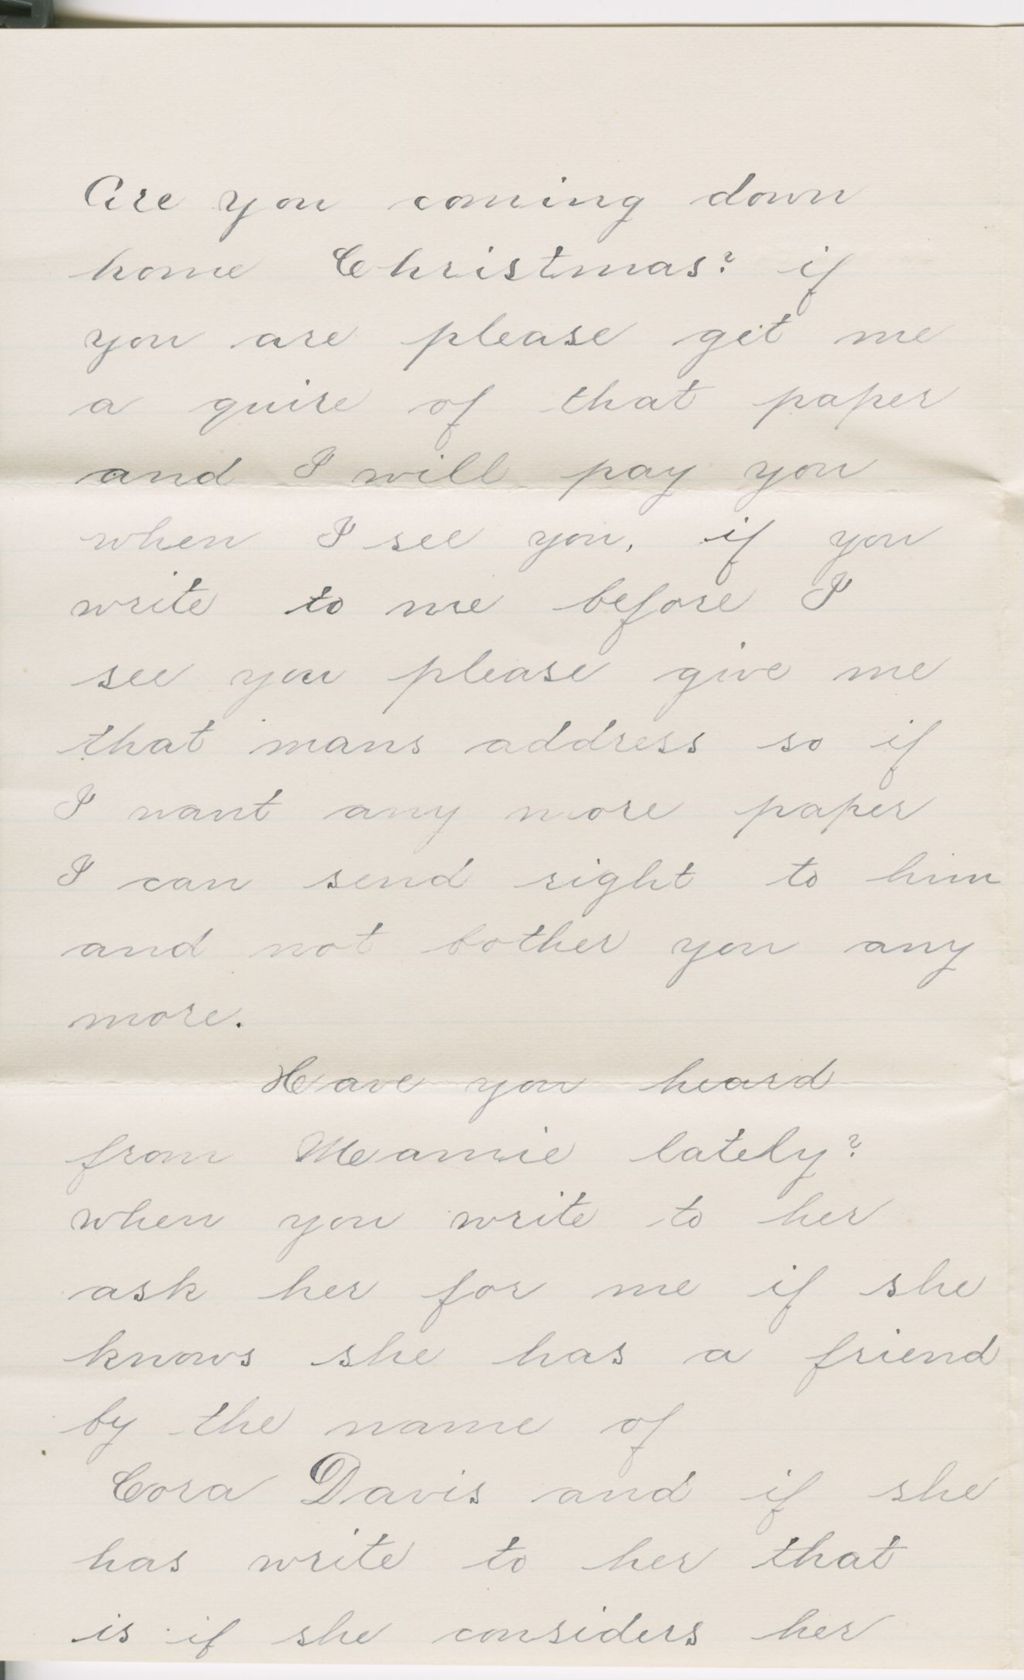 Are you coming down
home Christmas? if
you are please get me
a quire of that paper
and I will pay you
when I see you, if you
write to me before I
see you please give me
that mans address so if
I want any more paper
I can send right to him
and not bother you any
more.
Have you heard
from Mamie lately?
when you write to her
ask her for me if she
knows she has a friend
by the name of
Cora Davis and if she
has write to her that
is if she considers her